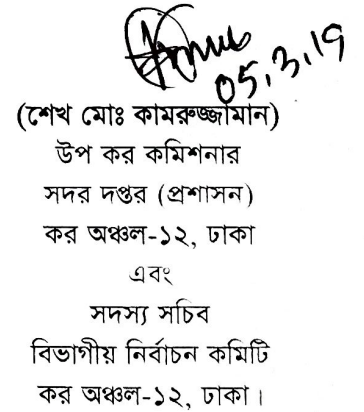 05.3.19
(শেখ মোঃ কামরুজ্জামান)
উপ কর কমিশনার
সদর দপ্তর (প্রশাসন)
কর অঞ্চল-১২, ঢাকা
এবং
সদস্য সচিব
বিভাগীয় নির্বাচন কমিটি
কর অঞ্চল-১২, ঢাকা।